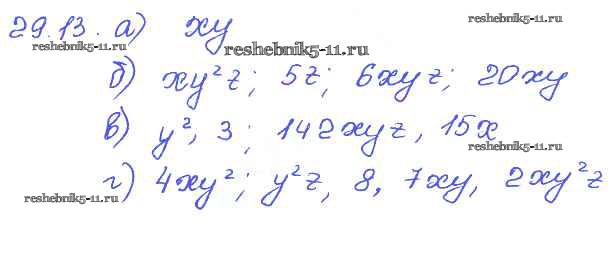 29.13. а) xy
reshebnik5-11.ru
reshebnik5-11.ru
reshebnik5-11.ru
б) xy²z; 5z; 6xyz; 20xy
в) y², 3; 142xyz, 15x
reshebnik5-11.ru
г) 4xy²; y²z, 8, 7xy, 2xy²z
reshebnik5-11.ru